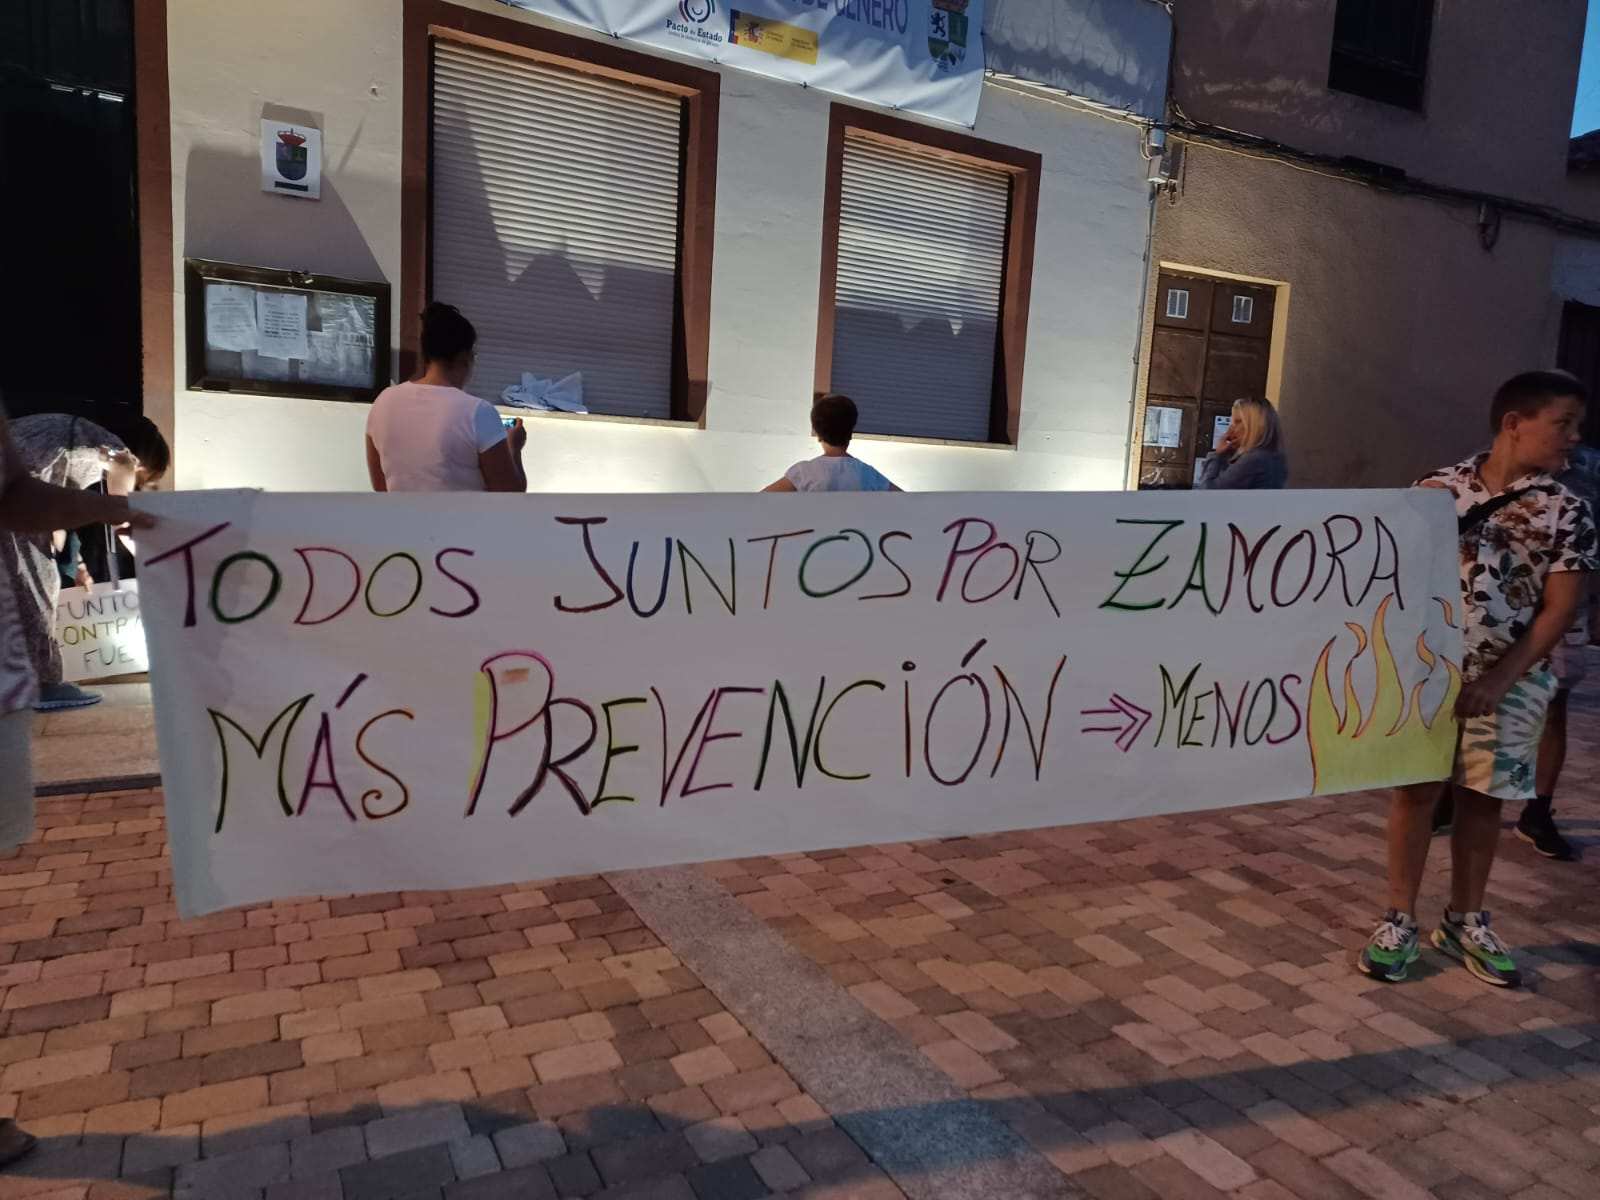 DE GÉNERO
Pacto de Estado
TODOS JUNTOS POR ZAMORA
MÁS PREVENCIÓN ⇒ MENOS
JUNTO
CONTRA
FUE